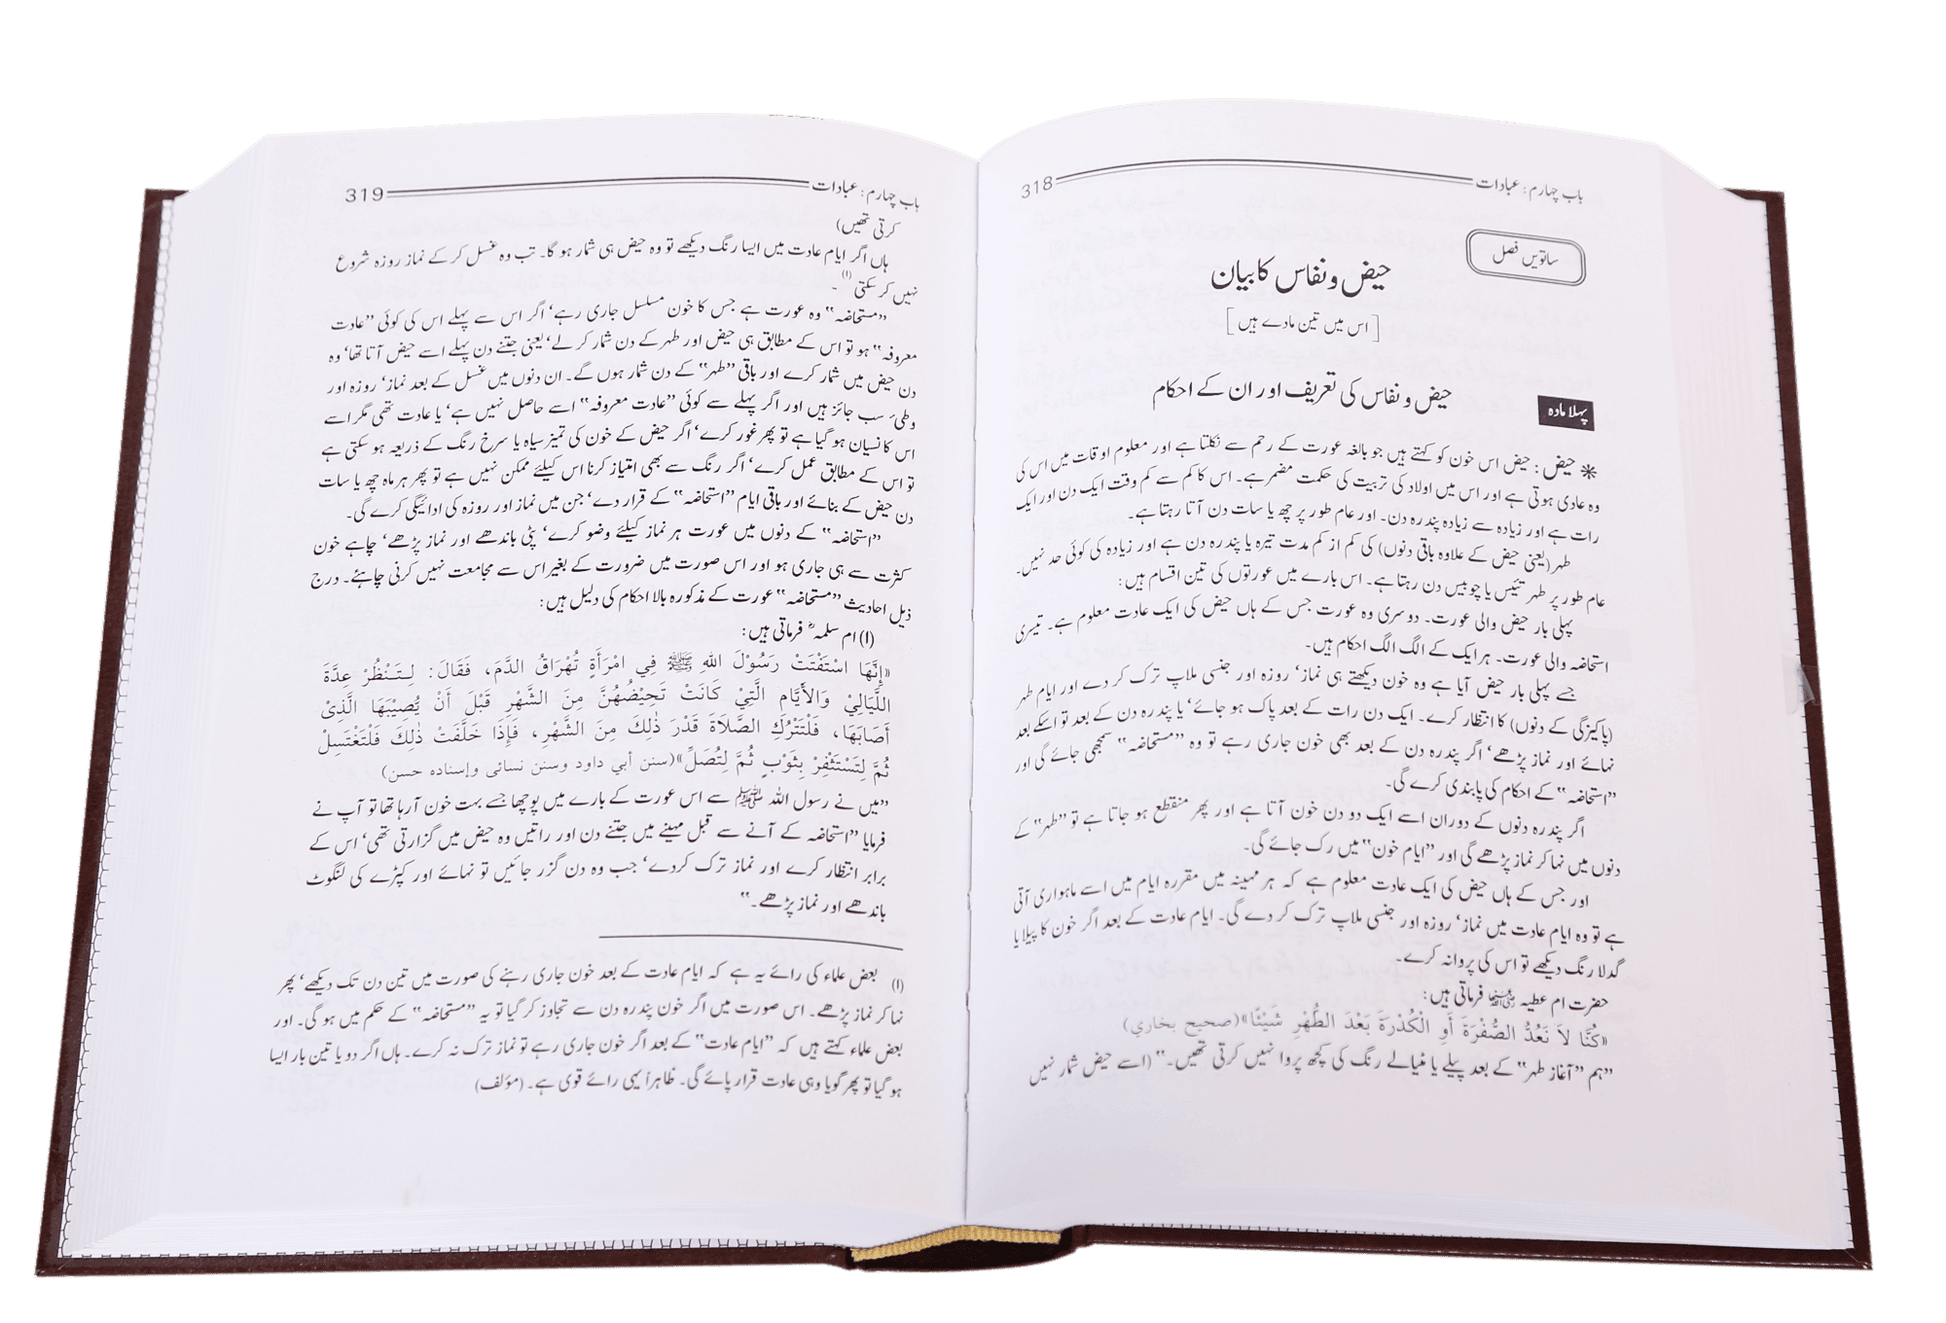 باب چہارم : عبادات 318
ساتویں فصل
حیض و نفاس کا بیان
[اس میں تین مادے ہیں]
پہلا مادہ
حیض و نفاس کی تعریف اور ان کے احکام
* حیض : حیض اس خون کو کہتے ہیں جو بالغہ عورت کے رحم سے نکلتا ہے اور معلوم اوقات میں اس کی
وہ عادی ہوتی ہے اور اس میں اولاد کی تربیت کی حکمت مضمر ہے۔ اس کا کم سے کم وقت ایک دن اور ایک
رات ہے اور زیادہ سے زیادہ پندرہ دن۔ اور عام طور پر چھ یا سات دن آتا رہتا ہے۔
طہر (یعنی حیض کے علاوہ باقی دنوں) کی کم از کم مدت تیرہ یا پندرہ دن ہے اور زیادہ کی کوئی حد نہیں۔
عام طور پر طہر تئیس یا چوبیس دن رہتا ہے۔ اس بارے میں عورتوں کی تین اقسام ہیں :
پہلی بار حیض والی عورت۔ دوسری وہ عورت جس کے ہاں حیض کی ایک عادت معلوم ہے۔ تیسری
استحاضہ والی عورت۔ ہر ایک کے الگ الگ احکام ہیں۔
جسے پہلی بار حیض آیا ہے وہ خون دیکھتے ہی نماز‘ روزہ اور جنسی ملاپ ترک کر دے اور ایام طہر
(پاکیزگی کے دنوں) کا انتظار کرے۔ ایک دن رات کے بعد پاک ہو جائے‘ یا پندرہ دن کے بعد تو اسکے بعد
نہائے اور نماز پڑھے‘ اگر پندرہ دن کے بعد بھی خون جاری رہے تو وہ ”مستحاضہ“ سمجھی جائے گی اور
”استحاضہ“ کے احکام کی پابندی کرے گی۔
اگر پندرہ دنوں کے دوران اسے ایک دو دن خون آتا ہے اور پھر منقطع ہو جاتا ہے تو ”طہر“ کے
دنوں میں نہا کر نماز پڑھے گی اور ”ایام خون“ میں رک جائے گی۔
اور جس کے ہاں حیض کی ایک عادت معلوم ہے کہ ہر مہینہ میں مقررہ ایام میں اسے ماہواری آتی
ہے تو وہ ایام عادت میں نماز‘ روزہ اور جنسی ملاپ ترک کر دے گی۔ ایام عادت کے بعد اگر خون کا پیلا یا
گدلا رنگ دیکھے تو اس کی پروا نہ کرے۔
حضرت ام عطیہ ﷞ فرماتی ہیں :
«كُنَّا لاَ نَعُدُّ الصُّفْرَةَ أَوِ الْكُدْرَةَ بَعْدَ الطُّهْرِ شَيْئًا» (صحيح بخاري)
”ہم ”آغاز طہر“ کے بعد پیلے یا مٹیالے رنگ کی کچھ پروا نہیں کرتی تھیں۔“ (اسے حیض شمار نہیں
باب چہارم : عبادات 319
کرتی تھیں)
ہاں اگر ایام عادت میں ایسا رنگ دیکھے تو وہ حیض ہی شمار ہو گا۔ تب وہ غسل کر کے نماز روزہ شروع
نہیں کر سکتی (۱)۔
”مستحاضہ“ وہ عورت ہے جس کا خون مسلسل جاری رہے‘ اگر اس سے پہلے اس کی کوئی ”عادت
معروفہ“ ہو تو اس کے مطابق ہی حیض اور طہر کے دن شمار کر لے‘ یعنی جتنے دن پہلے اسے حیض آتا تھا‘ وہ
دن حیض میں شمار کرے اور باقی ”طہر“ کے دن شمار ہوں گے۔ ان دنوں میں غسل کے بعد نماز‘ روزہ اور
وطیٔ سب جائز ہیں اور اگر پہلے سے کوئی ”عادت معروفہ“ اسے حاصل نہیں ہے‘ یا عادت تھی مگر اسے
اس کا نسیان ہو گیا ہے تو پھر غور کرے‘ اگر حیض کے خون کی تمیز سیاہ یا سرخ رنگ کے ذریعہ ہو سکتی ہے
تو اس کے مطابق عمل کرے‘ اگر رنگ سے بھی امتیاز کرنا اس کیلئے ممکن نہیں ہے تو پھر ہر ماہ چھ یا سات
دن حیض کے بنائے اور باقی ایام ”استحاضہ“ کے قرار دے‘ جن میں نماز اور روزہ کی ادائیگی کرے گی۔
”استحاضہ“ کے دنوں میں عورت ہر نماز کیلئے وضو کرے‘ پٹی باندھے اور نماز پڑھے‘ چاہے خون
کثرت سے ہی جاری ہو اور اس صورت میں ضرورت کے بغیر اس سے مجامعت نہیں کرنی چاہئے۔ درج
ذیل احادیث ”مستحاضہ“ عورت کے مذکورہ بالا احکام کی دلیل ہیں :
(۱) ام سلمہ ؓ فرماتی ہیں :
«إِنَّهَا اسْتَفْتَتْ رَسُوْلَ اللهِ ﷺ فِي امْرَأَةٍ تُهْرَاقُ الدَّمَ، فَقَالَ: لِتَنْظُرْ عِدَّةَ
اللَّيَالِيْ وَالأَيَّامِ الَّتِيْ كَانَتْ تَحِيْضُهُنَّ مِنَ الشَّهْرِ قَبْلَ أَنْ يُّصِيْبَهَا الَّذِيْ
أَصَابَهَا، فَلْتَتْرُكِ الصَّلاَةَ قَدْرَ ذٰلِكَ مِنَ الشَّهْرِ، فَإِذَا خَلَّفَتْ ذٰلِكَ فَلْتَغْتَسِلْ
ثُمَّ لِتَسْتَثْفِرْ بِثَوْبٍ ثُمَّ لِتُصَلِّ» (سنن أبي داود وسنن نسائى وإسناده حسن)
”میں نے رسول اللہ ﷺ سے اس عورت کے بارے میں پوچھا جسے بہت خون آرہا تھا تو آپ نے
فرمایا ”استحاضہ کے آنے سے قبل مہینے میں جتنے دن اور راتیں وہ حیض میں گزارتی تھی‘ اس کے
برابر انتظار کرے اور نماز ترک کردے‘ جب وہ دن گزر جائیں تو نہائے اور کپڑے کی لنگوٹ
باندھے اور نماز پڑھے۔“
(۱) بعض علماء کی رائے یہ ہے کہ ایام عادت کے بعد خون جاری رہنے کی صورت میں تین دن تک دیکھے‘ پھر
نہا کر نماز پڑھے۔ اس صورت میں اگر خون پندرہ دن سے تجاوز کر گیا تو یہ ”مستحاضہ“ کے حکم میں ہو گی۔ اور
بعض علماء کہتے ہیں کہ ”ایام عادت“ کے بعد اگر خون جاری رہے تو نماز ترک نہ کرے۔ ہاں اگر دو یا تین بار ایسا
ہو گیا تو پھر گویا وہی عادت قرار پائے گی۔ ظاہراً یہی رائے قوی ہے۔ (مؤلف)